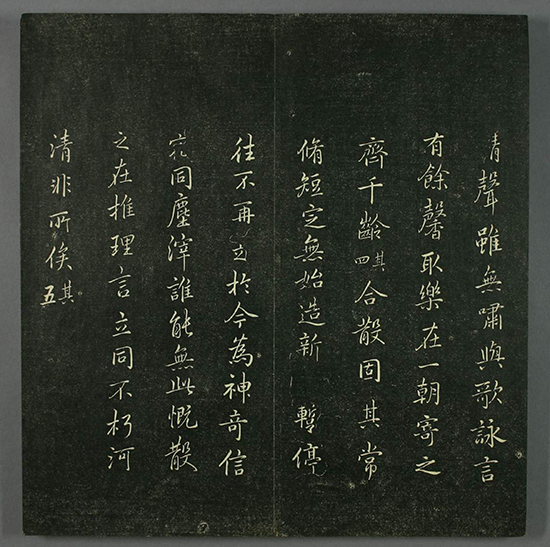 清聲雖無嘯與歌詠言
有餘馨取樂在一朝寄之
齊千齡其四合散固其常
脩短定無始造新暫停
往不再於今為神奇信
同塵滓誰能無此慨散
之在推理言立同不朽河
清非所俟其五